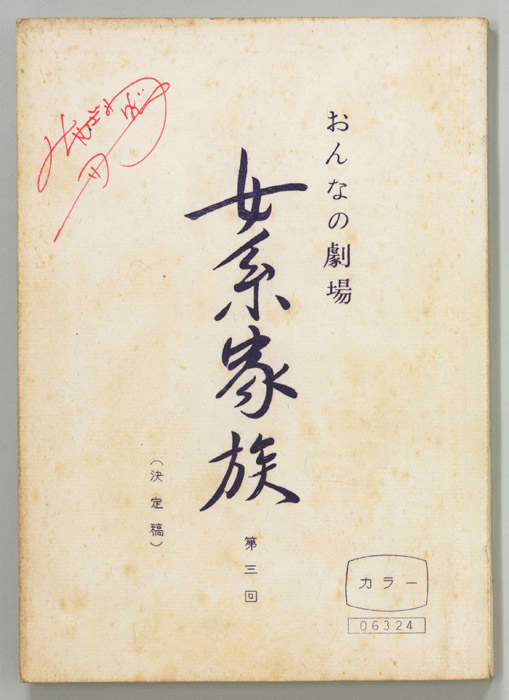 おんなの劇場
女系家族
第三回
（決定稿）
カラー
06324